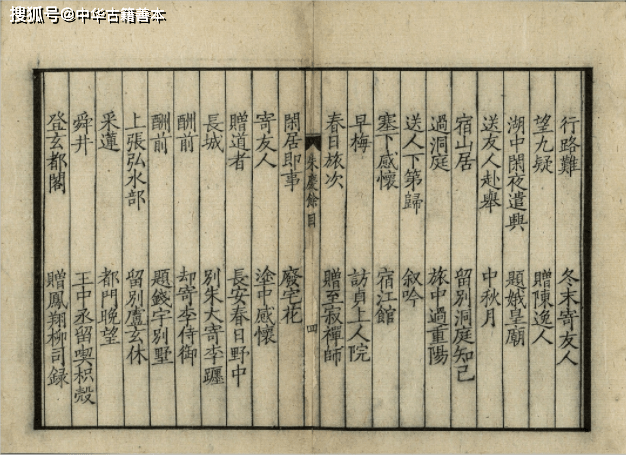 搜狐号@中华古籍善本
行路難 冬末寄友人
望九疑 贈陳逸人
湖中閑夜遣興 題娥皇廟
送友人赴舉 中秋月
宿山居 留別洞庭知己
過洞庭 旅中過重陽
送人下第歸 叙吟
塞下感懷 宿江館
早梅 訪貞上人院
春日旅次 贈至寂禪師
朱慶餘目 四
閑居即事 廢宅花
寄友人 塗中感懷
贈道者 長安春日野中
長城 別朱大寄李躔
酬前 却寄李侍御
酬前 題錢宇別墅
上張弘水部 留別盧玄休
采蓮 都門晚望
舜井 王中丞留喫枳殼
登玄都閣 贈鳳翔柳司録